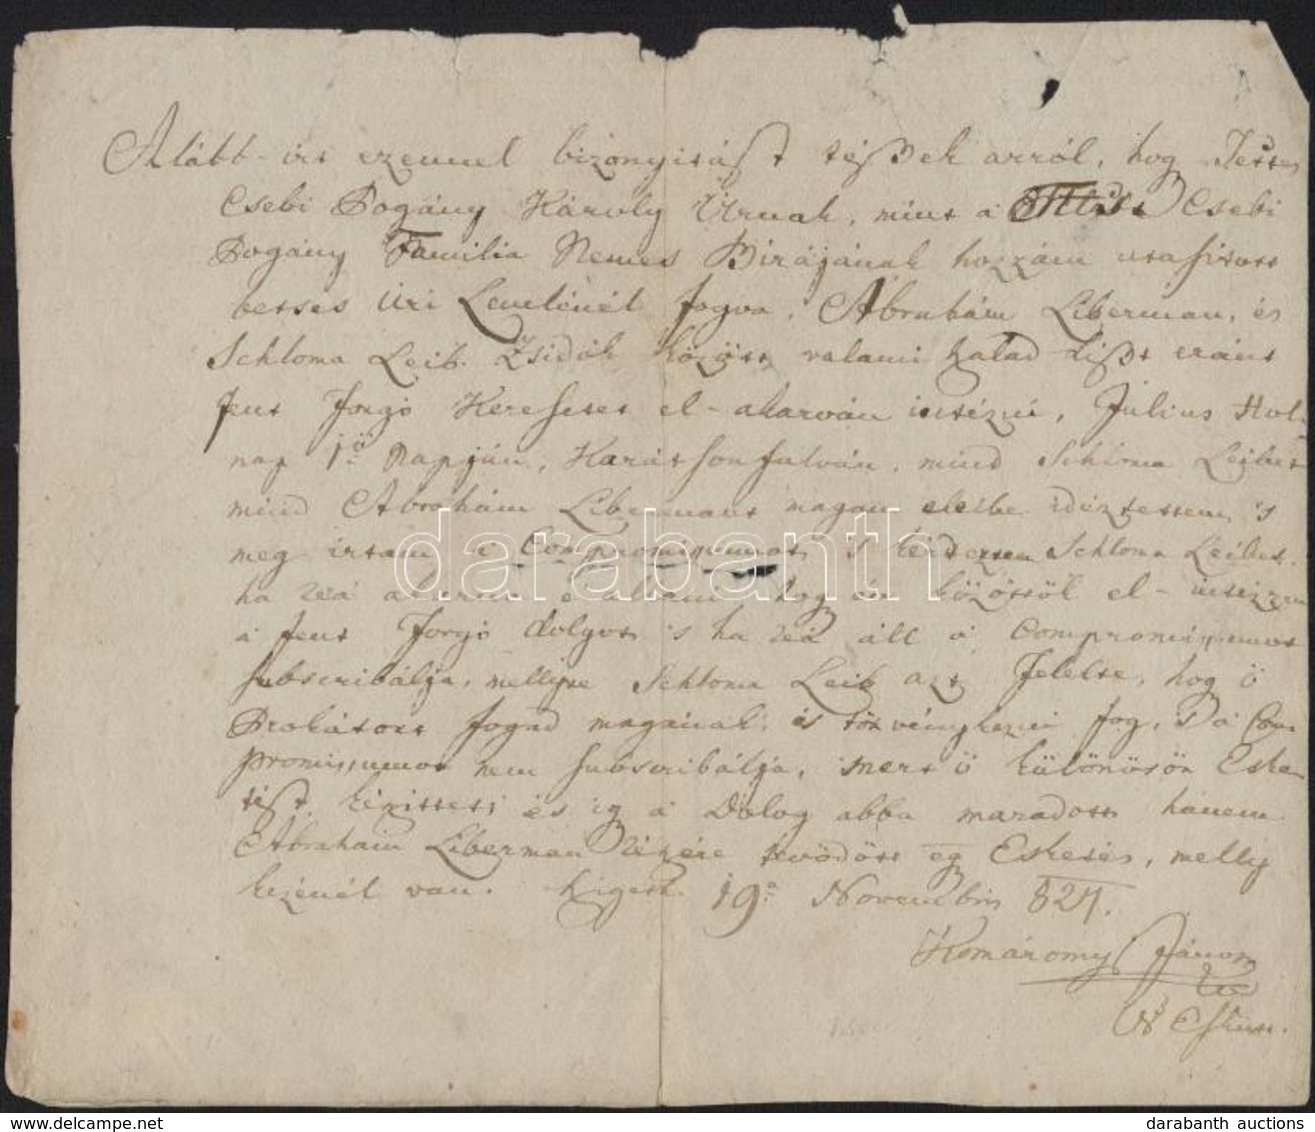 Alább-irt ezennel bizonyitást tészek arról, hog Tettes
Csebi Pogány Károly Úrnak, mint a Csebi
Pogány Familia Nemes Birájának hozzám utasitott
betses Úri Levelénél fogva, Ábrahám Liberman, és
Schloma Leib Zsidók között valami halad eránt
fent forgó Keresetet el-akarván intézni, Július Hol-
nap 1ő Napján, Karátsonfalván, mind Schloma Leibot
mind Ábrahám Libermant magam eleibe idéztettem 's
meg irtam a Compromissumot, 's Schloma Leibot
ha reá hog én közöttök el-intézzem
a fent forgó dolgot 's ha reá áll a Compromissumot
subscribálja, mellyre Schloma Leib azt felelte, hog ő
Prokátort fogad magának, és törvénykezni fog, 's a Com-
promissumot nem subscribálja, mert ő különösön Eske-
tést készittet, és ig a Dolog abba maradott, hanem
Ábrahám Liberman részére tevődött eg Esketés, melly
kezénél van. 19ª Novembris 824.
Komáromy János
N Esküt.
darabanth
darabanth auctions